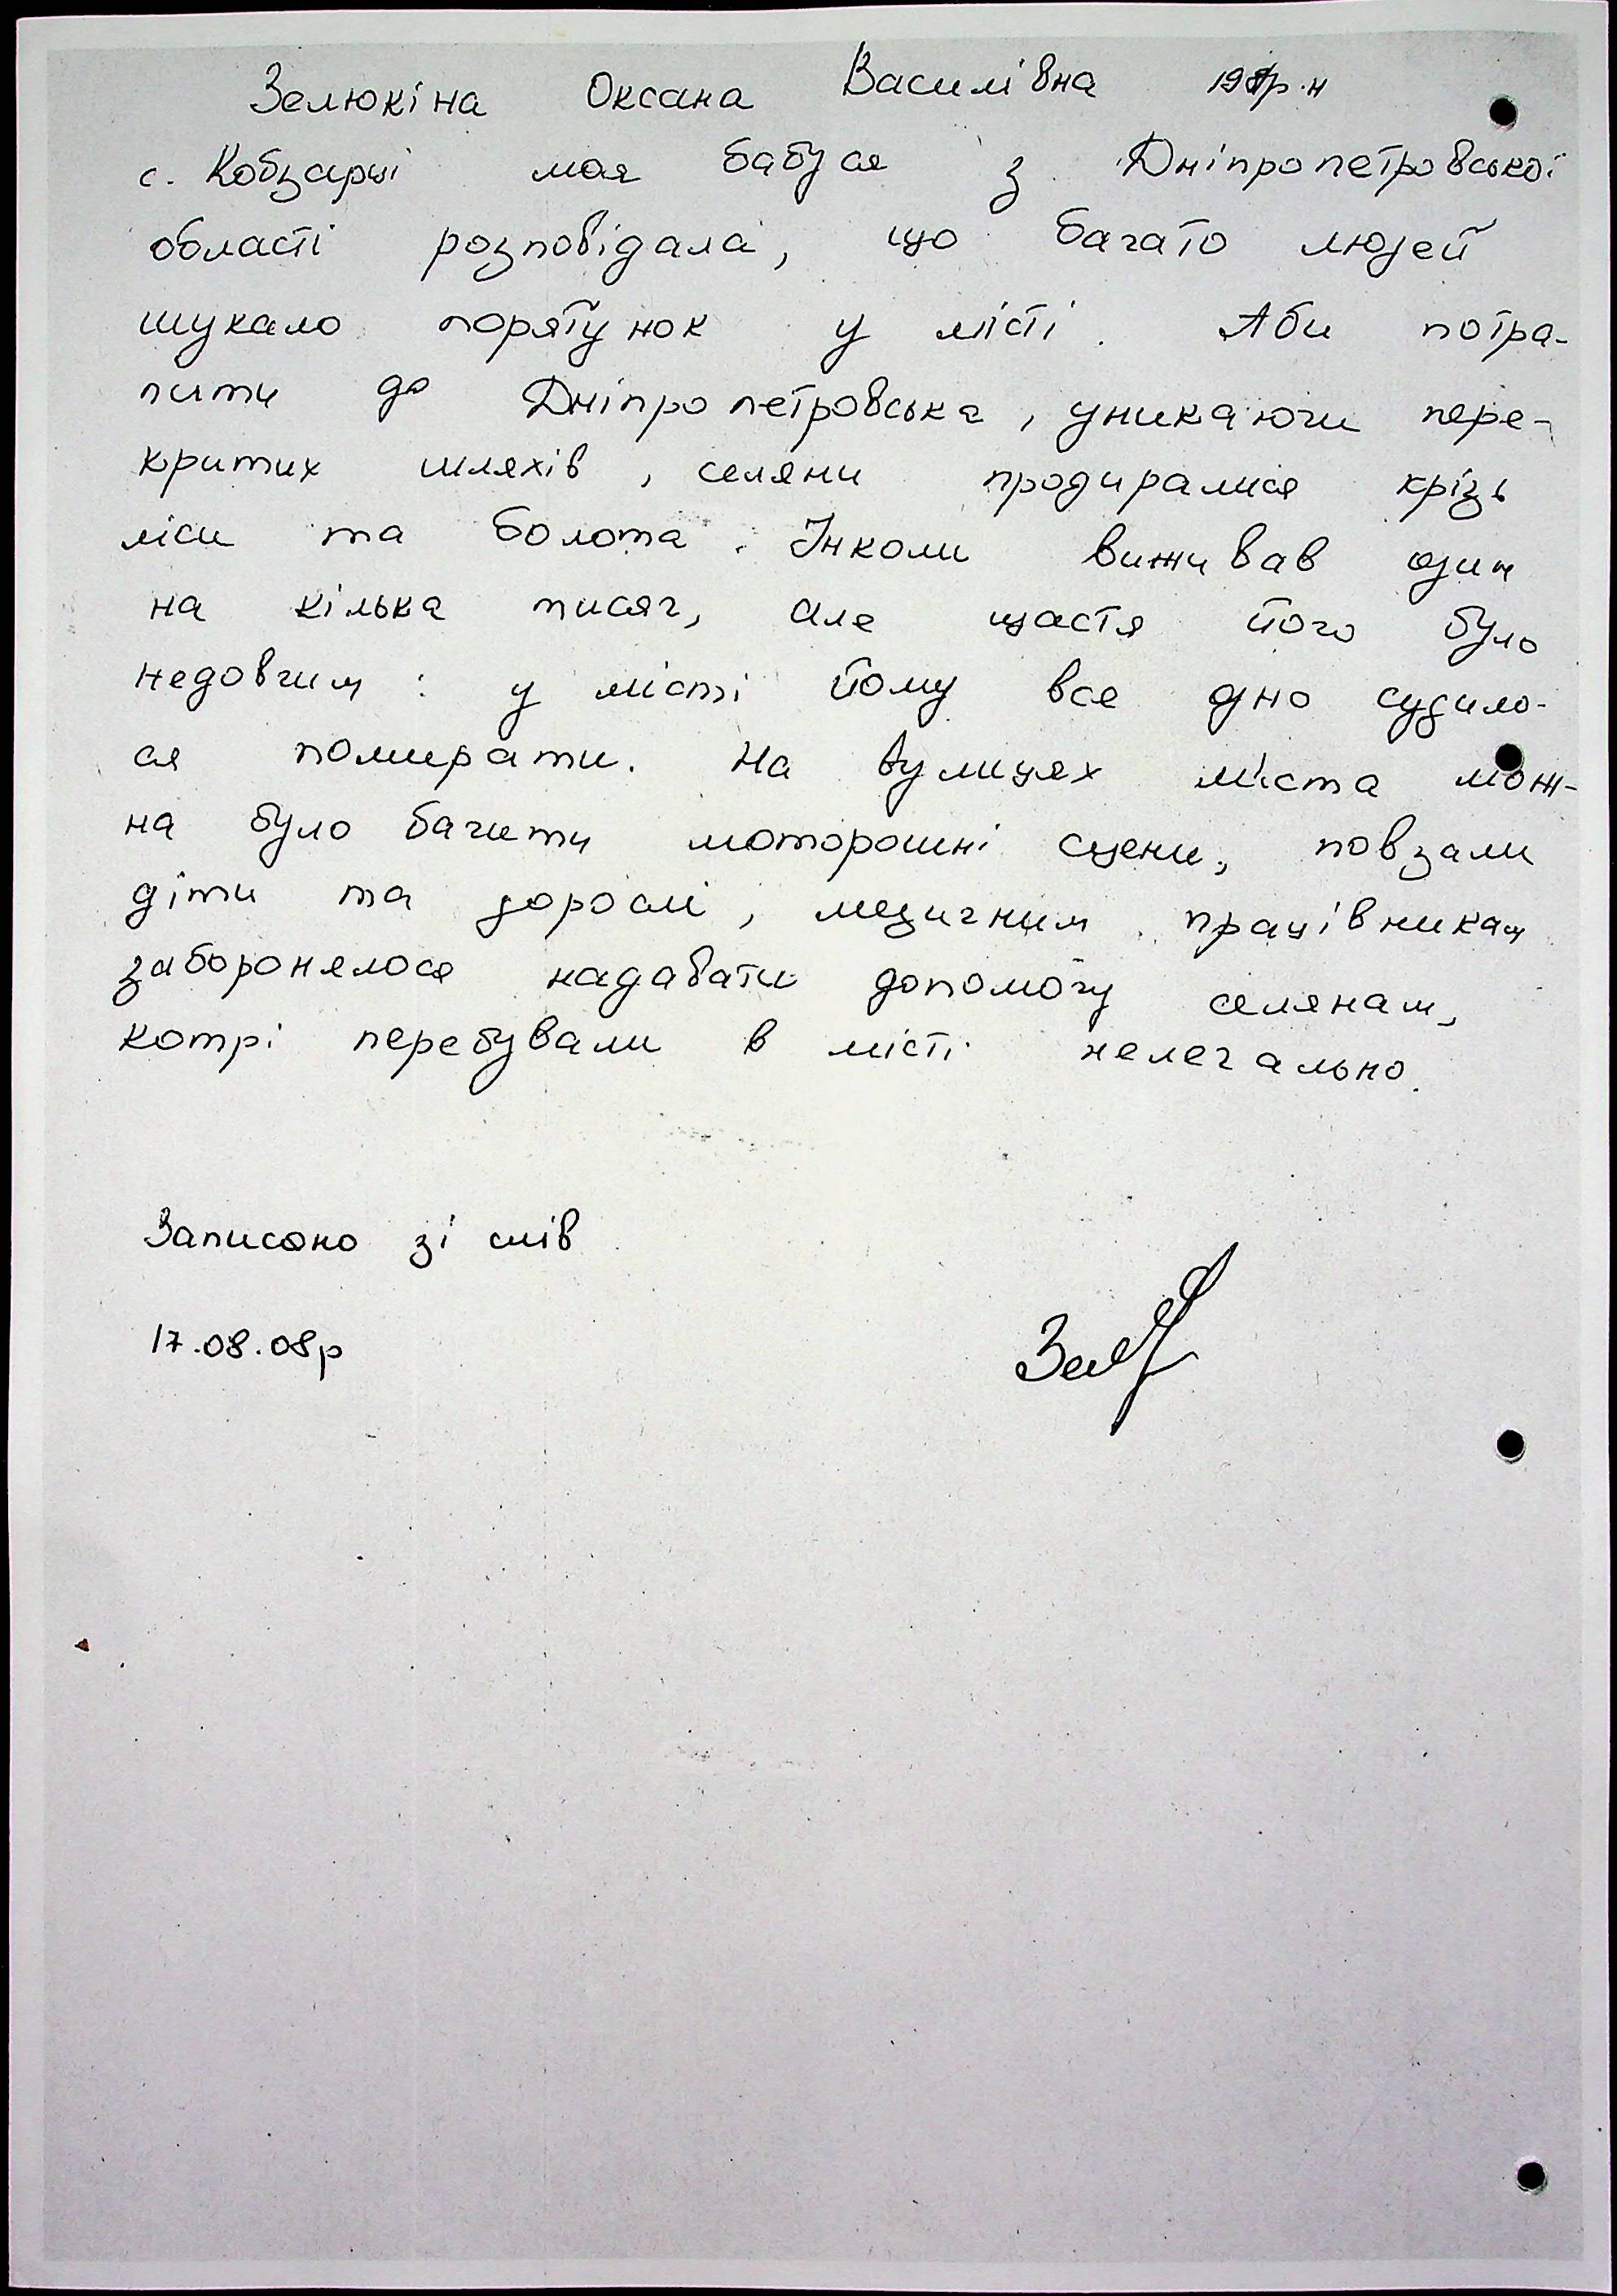 Зелюкіна Оксана Василівна
с. Кобзарці моя бабуся з Дніпропетровської
області розповідала, що багато людей
шукало порятунок у місті. Аби потра-
пити до Дніпропетровська, уникаючи пере-
критих шляхів, селяни продиралися крізь
ліси та болота. Інколи виживав один
на кілька тисяч, але щастя його було
недовгим: у місті йому все одно судило-
ся помирати. На вулицях міста мож-
на було бачити моторошні сцени, повзали
діти та дорослі, медичним працівникам
заборонялося надавати допомогу селянам,
котрі перебували в місті нелегально.
Записано зі слів
17.08.08р